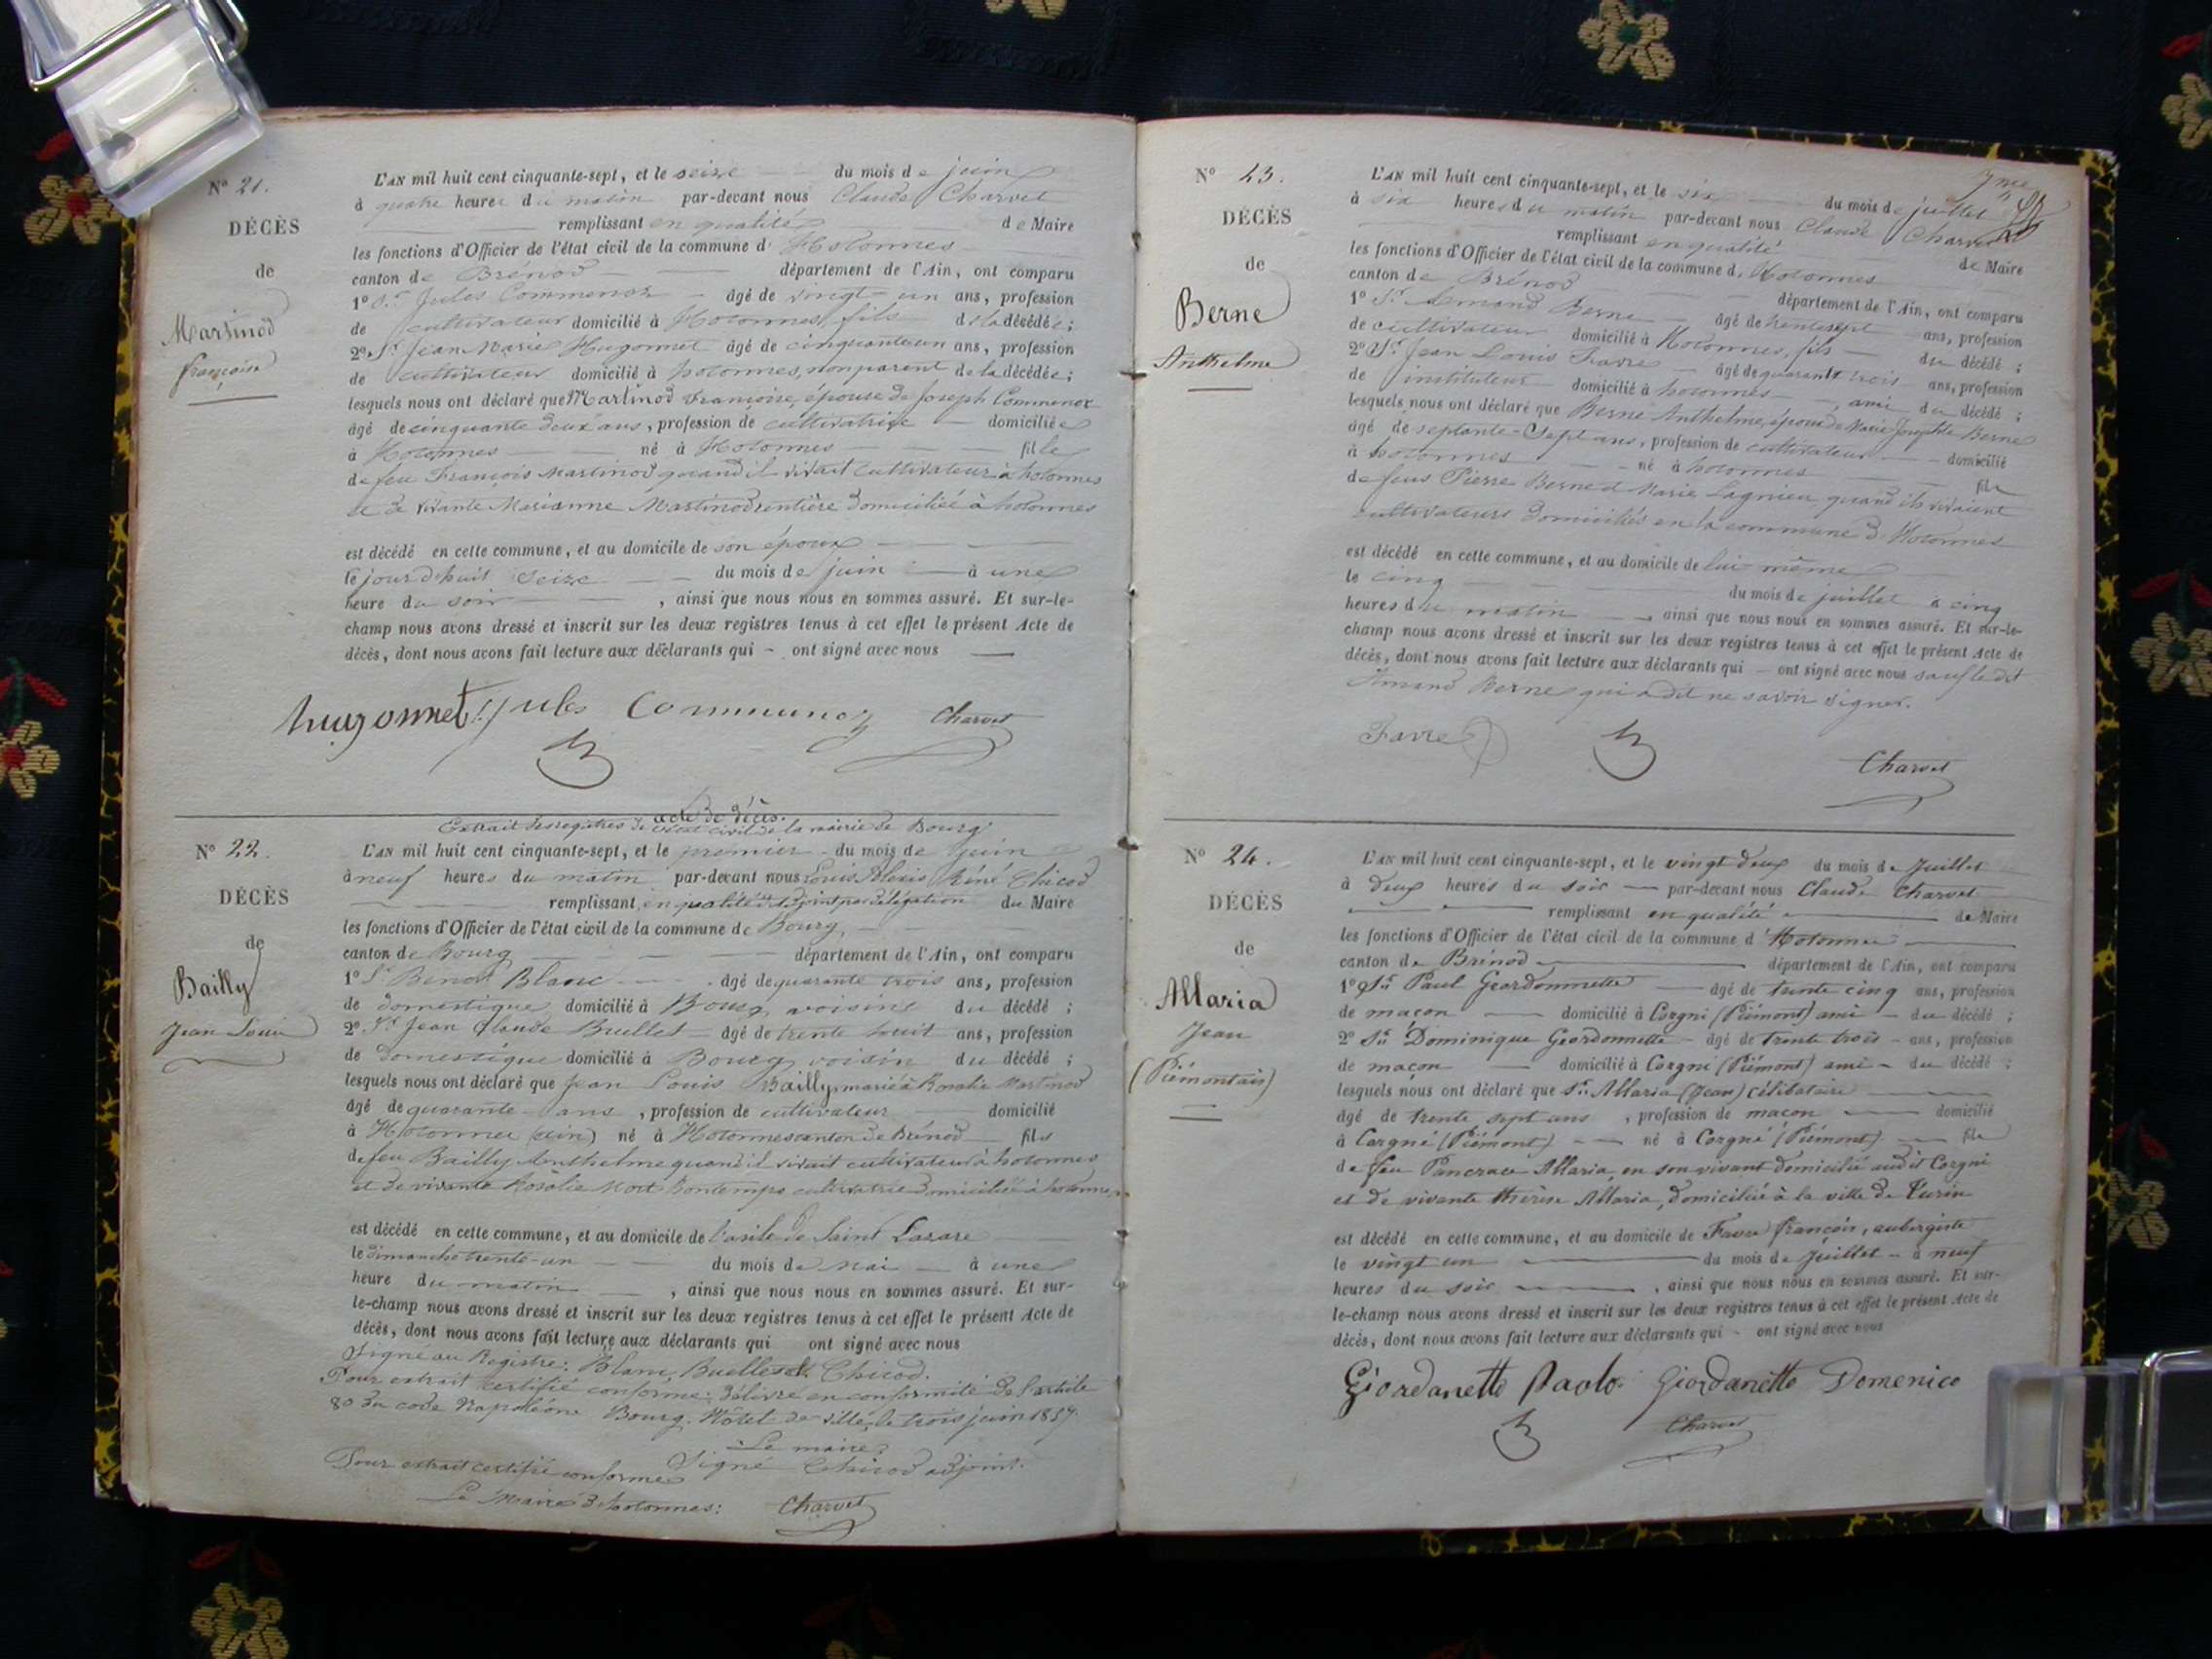 N° 21.
DÉCÈS
de
Martinod
françoise
L'AN mil huit cent cinquante-sept, et le seize du mois de juin
à quatre heures du matin par-devant nous Claude Charvet
remplissant en qualité de Maire
les fonctions d'Officier de l'état civil de la commune d'Hotonnes
canton de Brénod département de l'Ain, ont comparu
1° Sr. Jules Commenoz âgé de vingt-un ans, profession
de cultivateur domicilié à Hotonnes, fils de la décédée;
2° Sr. Jean Marie Hugonnet âgé de cinquante un ans, profession
de cultivateur domicilié à hotonnes, non parent de la décédée;
lesquels nous ont déclaré que Martinod Françoise, épouse de Joseph Commenoz
âgé de cinquante deux ans, profession de cultivatrice domiciliée
à Hotonnes né à Hotonnes fille
de feu François Martinod quand il vivait cultivateur à hotonnes
et de vivante Marianne Martinod rentière domiciliée à hotonnes
est décédé en cette commune, et au domicile de son époux
le jour d'huit seize du mois de juin à une
heure du soir, ainsi que nous nous en sommes assuré. Et sur-le-
champ nous avons dressé et inscrit sur les deux registres tenus à cet effet le présent Acte de
décès, dont nous avons fait lecture aux déclarants qui ont signé avec nous
hugonnet Jules Communoz Charvet
acte de décès.
Extrait des registres de l'état civil de la mairie de Bourg
N° 22.
DÉCÈS
de
Bailly
Jean Louis
L'AN mil huit cent cinquante-sept, et le premier du mois de juin
à neuf heures du matin par-devant nous Louis Alexis Réné Chicod
remplissant en qualité d'adjoint par délégation du Maire
les fonctions d'Officier de l'état civil de la commune de Bourg
canton de Bourg département de l'Ain, ont comparu
1° Sr. Benoit Blanc âgé de quarante trois ans, profession
de domestique domicilié à Bourg, voisins du décédé;
2° Sr. Jean Claude Buellet âgé de trente huit ans, profession
de domestique domicilié à Bourg voisin du décédé;
lesquels nous ont déclaré que Jean Louis Bailly, marié à Rosalie Martinod
âgé de quarante ans, profession de cultivateur domicilié
à Hotonnes (ain) né à Hotonnes canton de Brénod fils
de feu Bailly Anthelme quand il vivait cultivateur à hotonnes
et de vivante Rosalie Bontemps cultivatrice domiciliée à hotonnes
est décédé en cette commune, et au domicile de l'asile de Saint Lazare
le dimanche trente-un du mois de Mai à une
heure du matin, ainsi que nous nous en sommes assuré. Et sur-
le-champ nous avons dressé et inscrit sur les deux registres tenus à cet effet le présent Acte de
décès, dont nous avons fait lecture aux déclarants qui ont signé avec nous
Signé au Registre: Blanc, Buellet et Chicod.
Pour extrait certifié conforme: délivré en conformité de l'article
80 du code Napoléon Bourg, Hôtel de ville, le trois juin 1857.
Le maire
Signé Chicod adjoint.
Pour extrait certifié conforme
Le Maire d'hotonnes: Charvet
N° 23.
DÉCÈS
de
Berne
Anthelme
L'AN mil huit cent cinquante-sept, et le six du mois de juillet
à six heures du matin par-devant nous Claude Charvet
remplissant en qualité de Maire
les fonctions d'Officier de l'état civil de la commune d'Hotonnes
canton de Brénod département de l'Ain, ont comparu
1° Sr. Armand Berne âgé de trente sept ans, profession
de cultivateur domicilié à Hotonnes, fils du décédé;
2° Sr. Jean Louis Favre âgé de quarante trois ans, profession
de instituteur domicilié à hotonnes, ami du décédé;
lesquels nous ont déclaré que Berne Anthelme, époux de Marie Josephte Berne
âgé de septante-sept ans, profession de cultivateur domicilié
à hotonnes né à hotonnes fils
de feus Pierre Berne et Marie Lagnieu quand ils vivaient
cultivateurs domiciliés en la commune d'Hotonnes
est décédé en cette commune, et au domicile de lui-même
le cinq du mois de juillet à cinq
heures du matin, ainsi que nous nous en sommes assuré. Et sur-le-
champ nous avons dressé et inscrit sur les deux registres tenus à cet effet le présent Acte de
décès, dont nous avons fait lecture aux déclarants qui ont signé avec nous sauf le dit
Armand Berne qui a dit ne savoir signer.
Favre
Charvet
N° 24.
DÉCÈS
de
Allaria
Jean
(Piémontais)
L'AN mil huit cent cinquante-sept, et le vingt deux du mois de Juillet
à deux heures du soir par-devant nous Claude Charvet
remplissant en qualité de Maire
les fonctions d'Officier de l'état civil de la commune d'Hotonnes
canton de Brénod département de l'Ain, ont comparu
1° Sr. Paul Geordonnette âgé de trente cinq ans, profession
de maçon domicilié à Corgné (Piémont) ami du décédé;
2° Sr. Dominique Geordonnette âgé de trente trois ans, profession
de maçon domicilié à Corgné (Piémont) ami du décédé;
lesquels nous ont déclaré que Sr. Allaria (Jean) célibataire
âgé de trente sept ans, profession de maçon domicilié
à Corgné (Piémont) né à Corgné (Piémont) fils
de feu Pancrace Allaria, en son vivant domicilié audit Corgné
et de vivante thérèse Allaria, domiciliée à la ville de Turin
est décédé en cette commune, et au domicile de Favre françois, aubergiste
le vingt un du mois de Juillet à neuf
heures du soir, ainsi que nous nous en sommes assuré. Et sur-
le-champ nous avons dressé et inscrit sur les deux registres tenus à cet effet le présent Acte de
décès, dont nous avons fait lecture aux déclarants qui ont signé avec nous
Giordanetto Paolo Giordanetto Domenico
Charvet